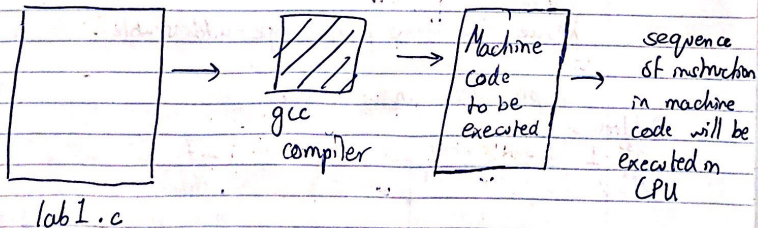 lab1.c
gcc
compiler
Machine
code
to be
executed
sequence
of instruction
in machine
code will be
executed in
CPU